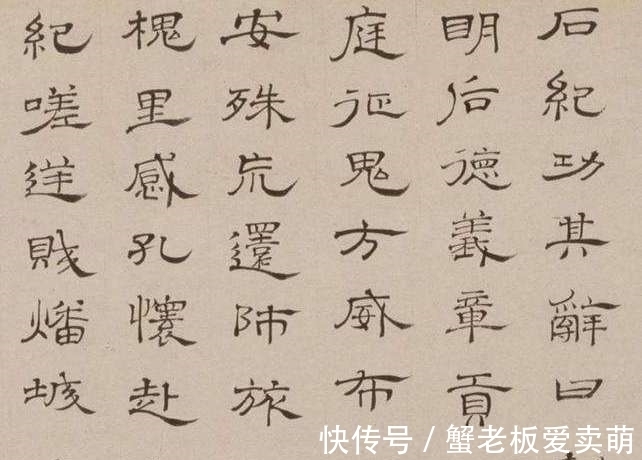 石紀功其辭曰
明后德義章貢
庭征鬼方威布
安殊巟還師旅
槐里感孔懷赴
紀嗟逆賊燔城
快传号 / 蟹老板爱卖萌